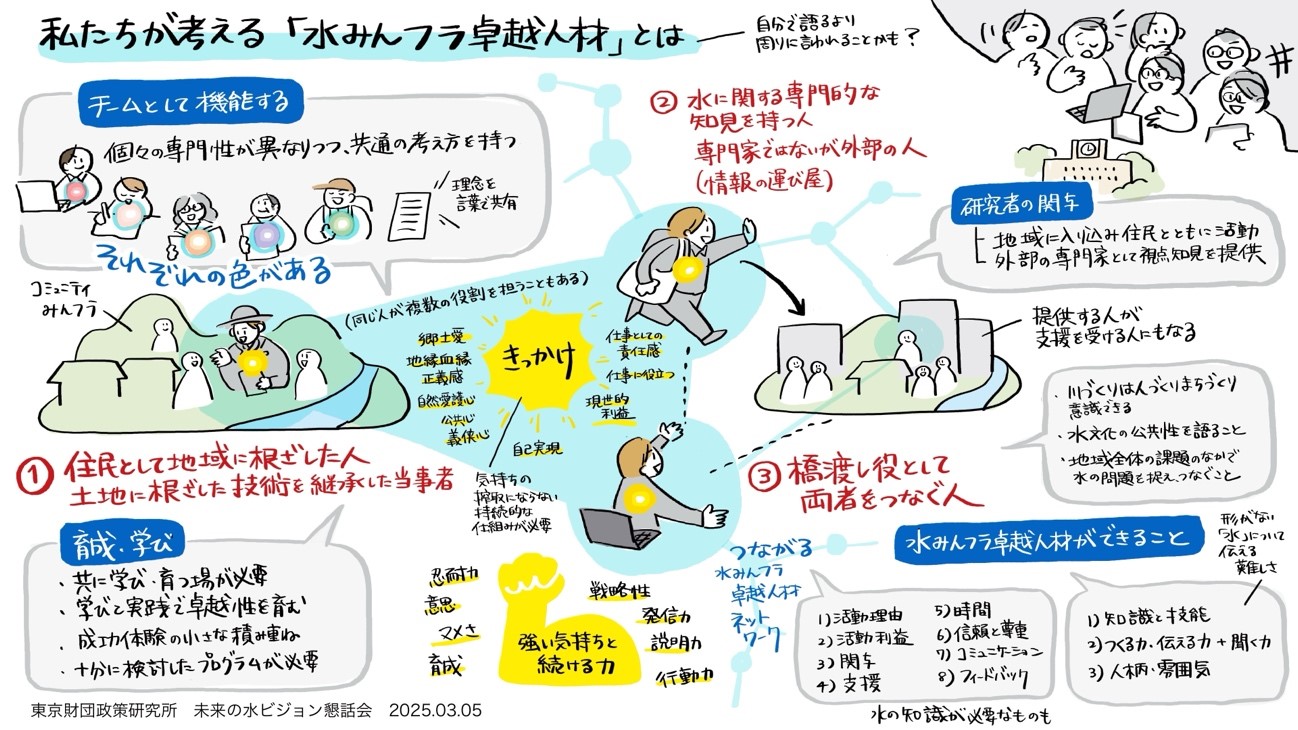 私たちが考える「水みんフラ卓越人材」とは
自分で語るより
周りに言われることかも？
チームとして機能する
個々の専門性が異なりつつ、共通の考え方を持つ
理念を
言葉で共有
それぞれの色がある
コミュニティ
みんフラ
(同じ人が複数の役割を担うこともある)
① 住民として地域に根ざした人
土地に根ざした技術を継承した当事者
② 水に関する専門的な
知見を持つ人
専門家ではないが外部の人
(情報の運び屋)
研究者の関与
地域に入り込み住民とともに活動
外部の専門家として視点知見を提供
提供する人が
支援を受ける人にもなる
きっかけ
郷土愛
地縁血縁
正義感
自然愛護心
公共心
義侠心
自己実現
仕事としての
責任感
仕事に役立つ
現世的
利益
気持ちの
搾取にならない
持続的な
仕組みが必要
③ 橋渡し役として
両者をつなぐ人
・川づくりは人づくりまちづくり
意識できる
・水文化の公共性を語ること
・地域全体の課題のなかで
水の問題を捉え、つなぐこと
育成・学び
・共に学び・育つ場が必要
・学びと実践で卓越性を育む
成功体験の小さな積み重ね
・十分に検討したプログラムが必要
強い気持ちと
続ける力
忍耐力
意思
マメさ
育成
戦略性
発信力
説明力
行動力
つながる
水みんフラ
卓越人材
ネット
ワーク
水みんフラ卓越人材ができること
形がない
「水」について
伝える
難しさ
1) 活動理由
2) 活動利益
3) 関与
4) 支援
5) 時間
6) 信頼と尊重
7) コミュニケーション
8) フィードバック
水の知識が必要なものも
1) 知識と技能
2) つくる力・伝える力+聞く力
3) 人柄・雰囲気
東京財団政策研究所　未来の水ビジョン懇話会　2025.03.05